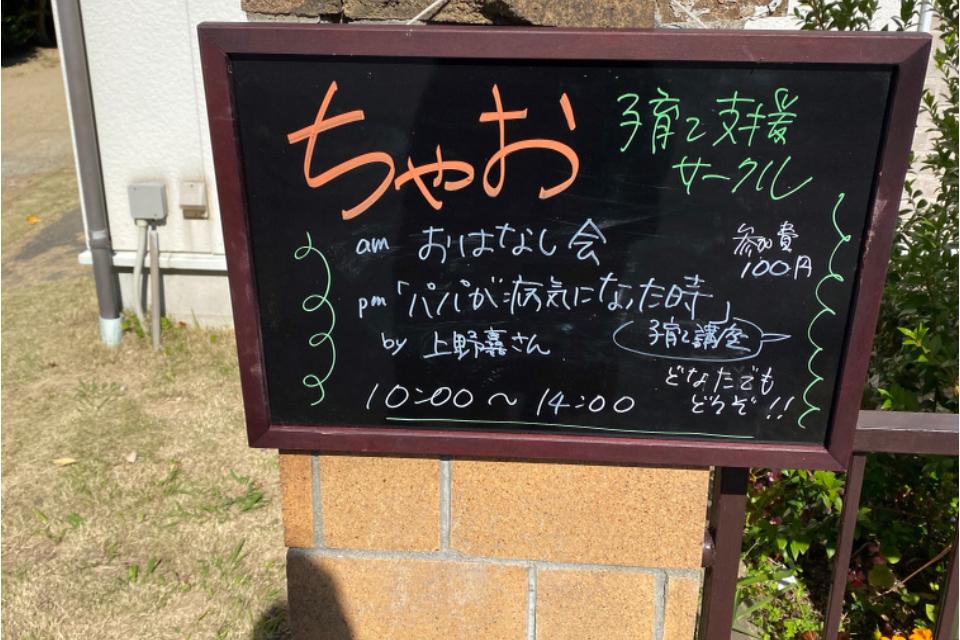 ちゃお
子育て支援
サークル
am おはなし会
参加費
100円
pm 「パパが病気になった時」
by 上野嘉さん
子育て講座
どなたでも
どうぞ!!
10:00～14:00